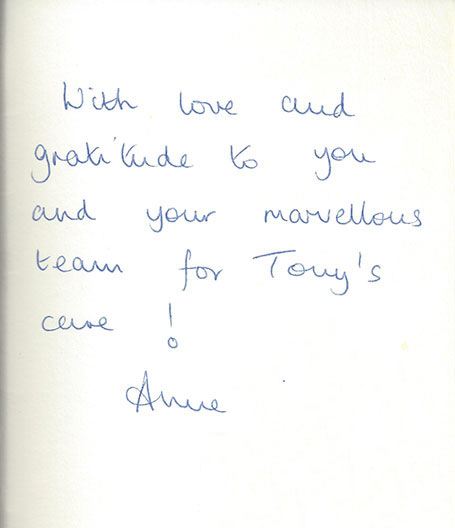 With love and
gratitude to you
and your marvellous
team for Tony's
care !
Anne